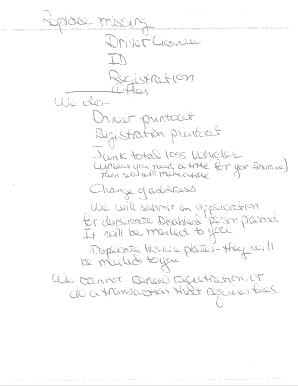 Replace missing
Driver License
ID
Registration
Titles
We do-
Driver printout
Registration printout
Junk total loss vehicles
(unless you need a title for your insurance)
Then you will make a title
Change of address
We will submit an application
for duplicate Disabled person placard
It will be mailed to you
Duplicate license plates - they will
be mailed to you
We cannot renew registration, or
do a transaction that requires fees.